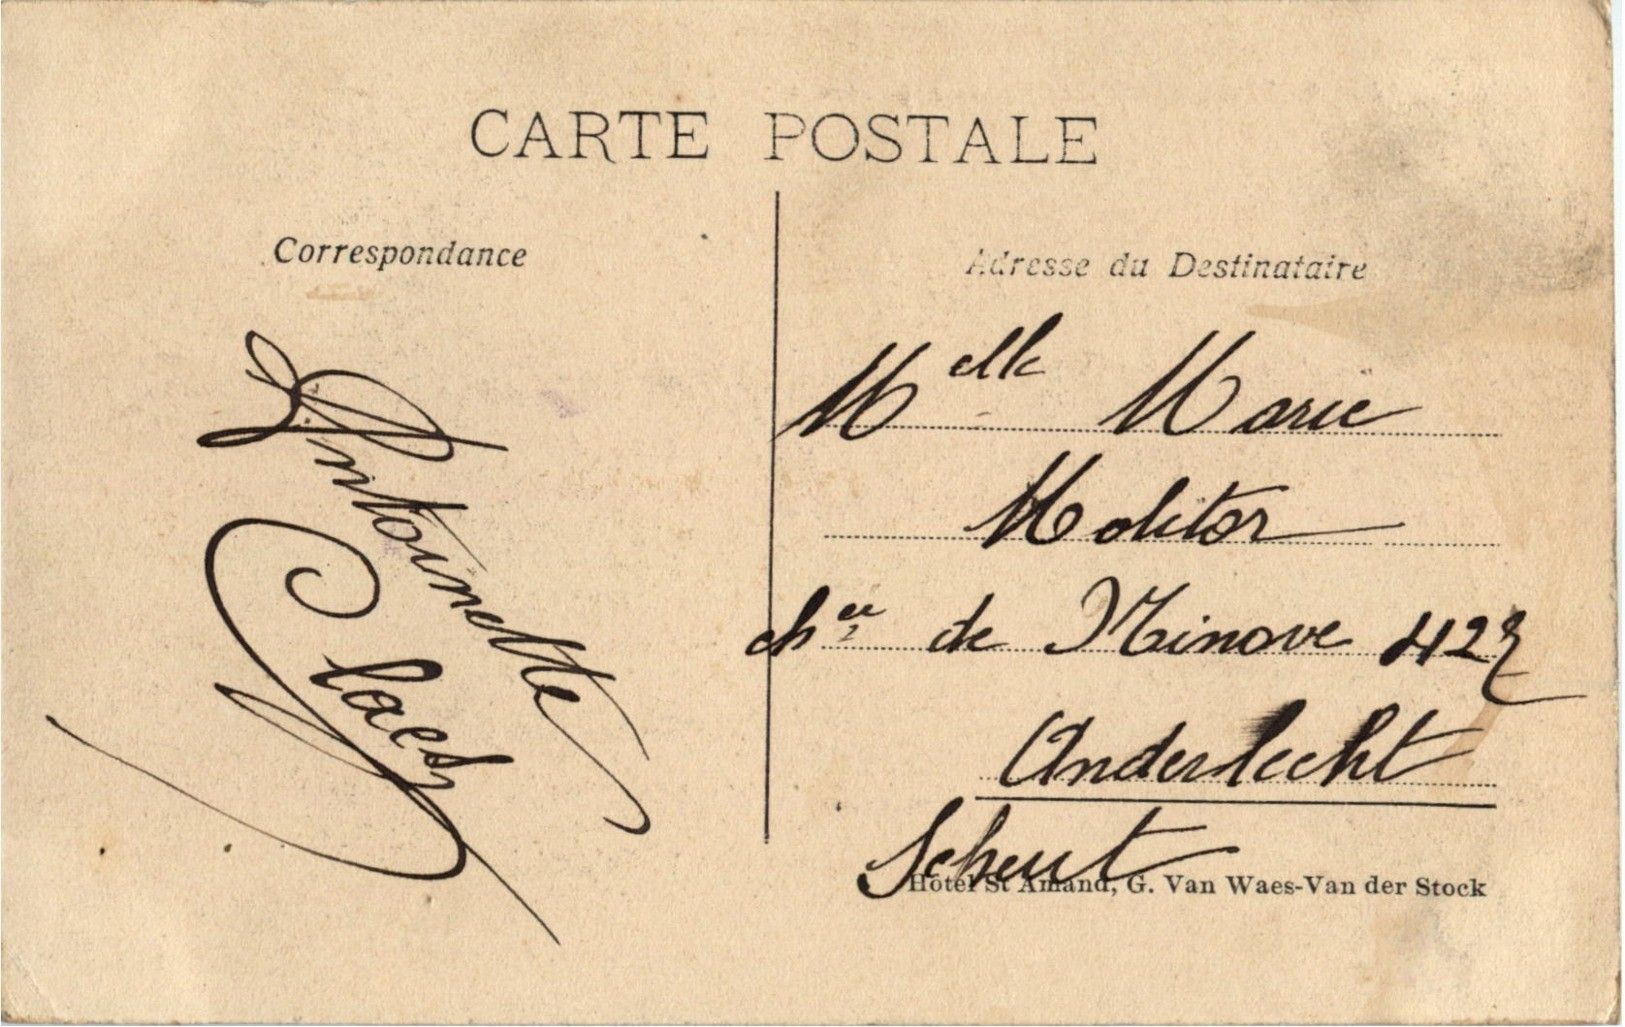 CARTE POSTALE
Correspondance
Antoinette
Claes
Adresse du Destinataire
Melle Marie
Molitor
chée de Ninove 422
Anderlecht
Scheut
Hôtel St Amand, G. Van Waes-Van der Stock